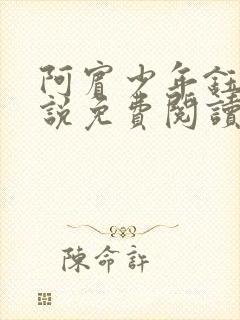 阿賓少年鈺
說免費閱讀
陳命許